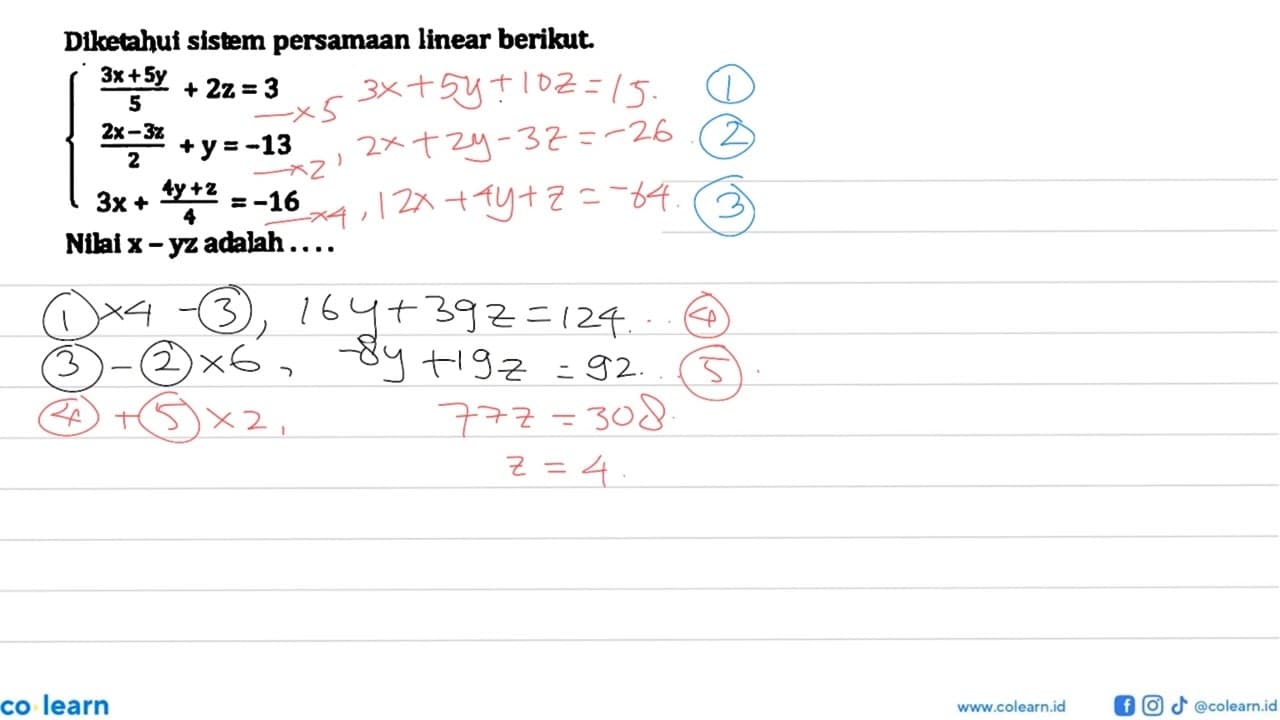 Diketahui sistem persamaan linear berikut.
(3x+5y)/5 + 2z = 3 —×5 3x+5y+10z=15. ①
(2x-3z)/2 + y = -13 —×2, 2x+2y-3z=-26 ②
3x + (4y+z)/4 = -16 —×4, 12x+4y+z=-64. ③
Nilai x – yz adalah ....
①×4 -③, 16y+39z=124... ④
③-②×6, -8y+19z=92... ⑤
④+⑤×2, 77z=308.
z=4.
co learn
www.colearn.id
@colearn.id